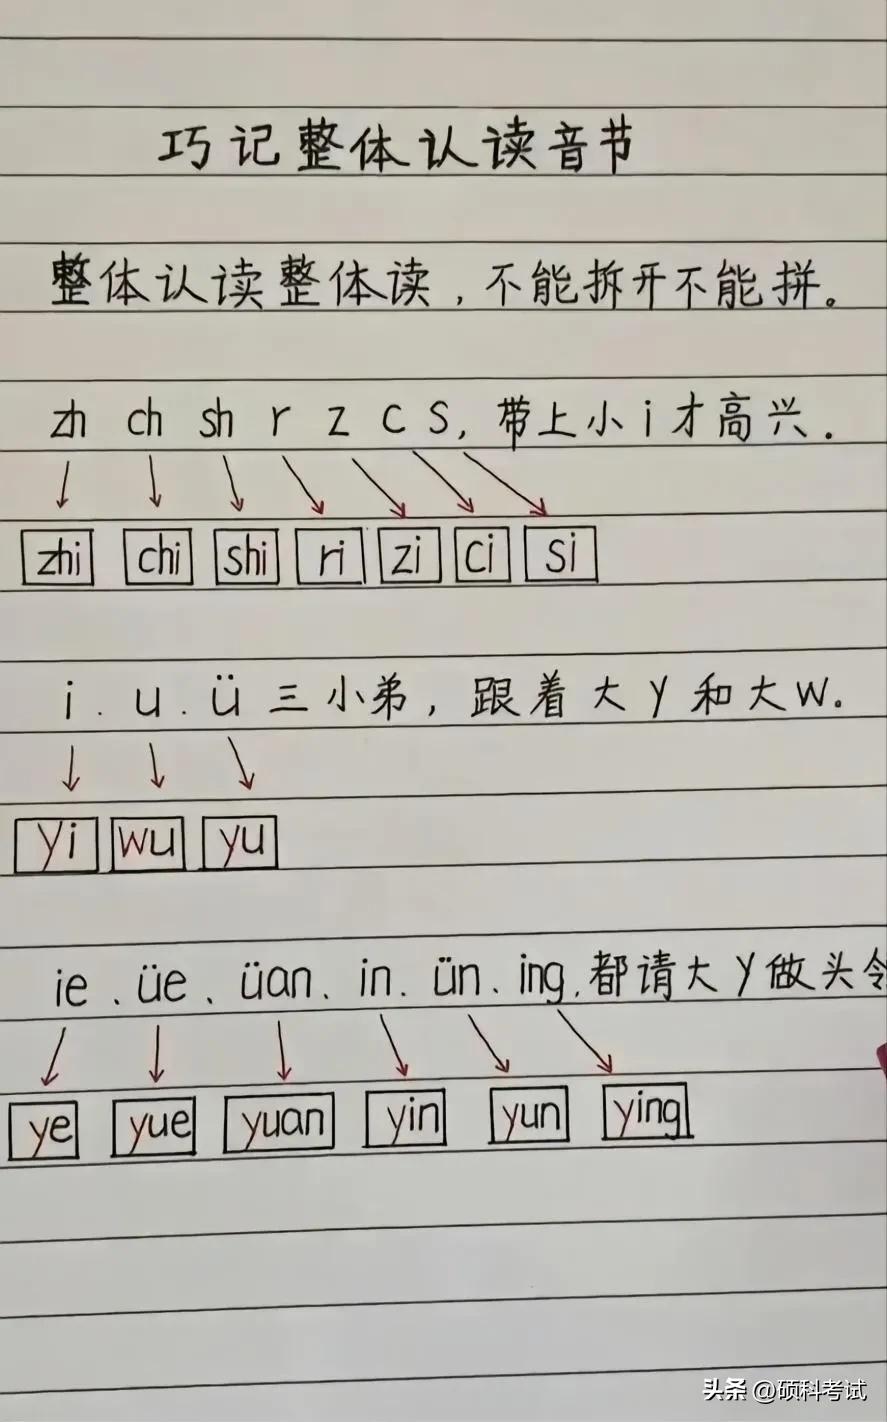 巧记整体认读音节
整体认读整体读,不能拆开不能拼。
zh ch sh r z c s,带上小i才高兴.
zhi chi shi ri zi ci si
i.u.ü三小弟,跟着大y和大w.
yi wu yu
ie、üe、üan、in.ün、ing,都请大y做头领
ye yue yuan yin yun ying
头条 @硕科考试